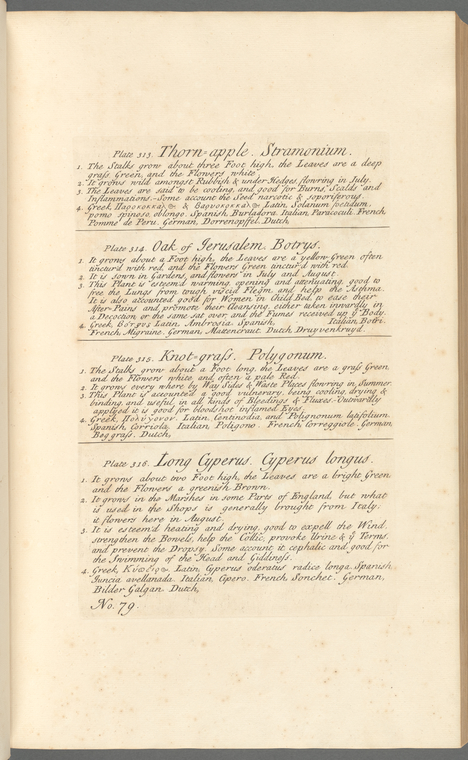 Plate 313. Thorn=apple. Stramonium.
1. The Stalks grow about three Foot high, the Leaves are a deep
grass Green, and the Flowers white.
2. It grows wild amongst Rubbish & under Hedges, flowring in July.
3. The Leaves are said to be cooling, and good for Burns, Scalds and
Inflammations. Some account the Seed narcotic & soporiferous.
4. Greek, & Latin, Solanum foetidum,
pomo spinoso, oblongo. Spanish, Burladora. Italian, Paracoculi. French,
Pomme de Peru. German, Dorrenopffel. Dutch,
Plate 314. Oak of Jerusalem. Botrys.
1. It grows about a Foot high, the Leaves are a yellow Green often
tinctur'd with red, and the Flowers Green tinctur'd with red.
2. It is sown in Gardens, and flowers in July and August.
3. This Plant is esteem'd warming, opening and attenuating, good to
free the Lungs from tough viscid Flegm, and help the Asthma.
It is also accounted good for Women in Child Bed, to ease their
After-Pains and promote their Cleansing, either taken inwardly in
a Decoction or the same sat over, and the Fumes received up ye Body.
4. Greek, Βότρυς Latin, Ambrosia. Spanish, Italian, Botri.
French, Migraine. German, Mattencraut. Dutch, Druyvenkruyd.
Plate 315. Knot-grass. Polygonum.
1. The Stalks grow about a Foot long, the Leaves are a grass Green
and the Flowers white and often a pale Red.
2. It grows every where by Way Sides & Waste Places flowring in Summer.
3. This Plant is accounted a good vulnerary, being cooling, drying &
binding, and useful in all kinds of Bleedings & Fluxes. Outwardly
applyed it is good for bloodshot inflamed Eyes.
4. Greek, Πολύγονον. Latin, Centinodia, and Polignonum latifolium.
Spanish, Corriola. Italian, Poligono. French, Correggiole. German,
Beggrass. Dutch,
Plate 316. Long Cyperus. Cyperus longus.
1. It grows about two Foot high, the Leaves are a bright Green
and the Flowers a greenish Brown.
2. It grows in the Marshes in some Parts of England, but what
is used in the Shops is generally brought from Italy.
it flowers here in August.
3. It is esteem'd heating and drying, good to expell the Wind,
strengthen the Bowels, help the Collic, provoke Urine & ye Terms,
and prevent the Dropsy. Some account it cephalic and good for
the Swimming of the Head and Giddiness.
4. Greek, Latin, Cyperus odoratus radice longa. Spanish,
Juncia avellanada. Italian, Cipero. French, Sonchet. German,
Bilder Galgan. Dutch,
No. 79.